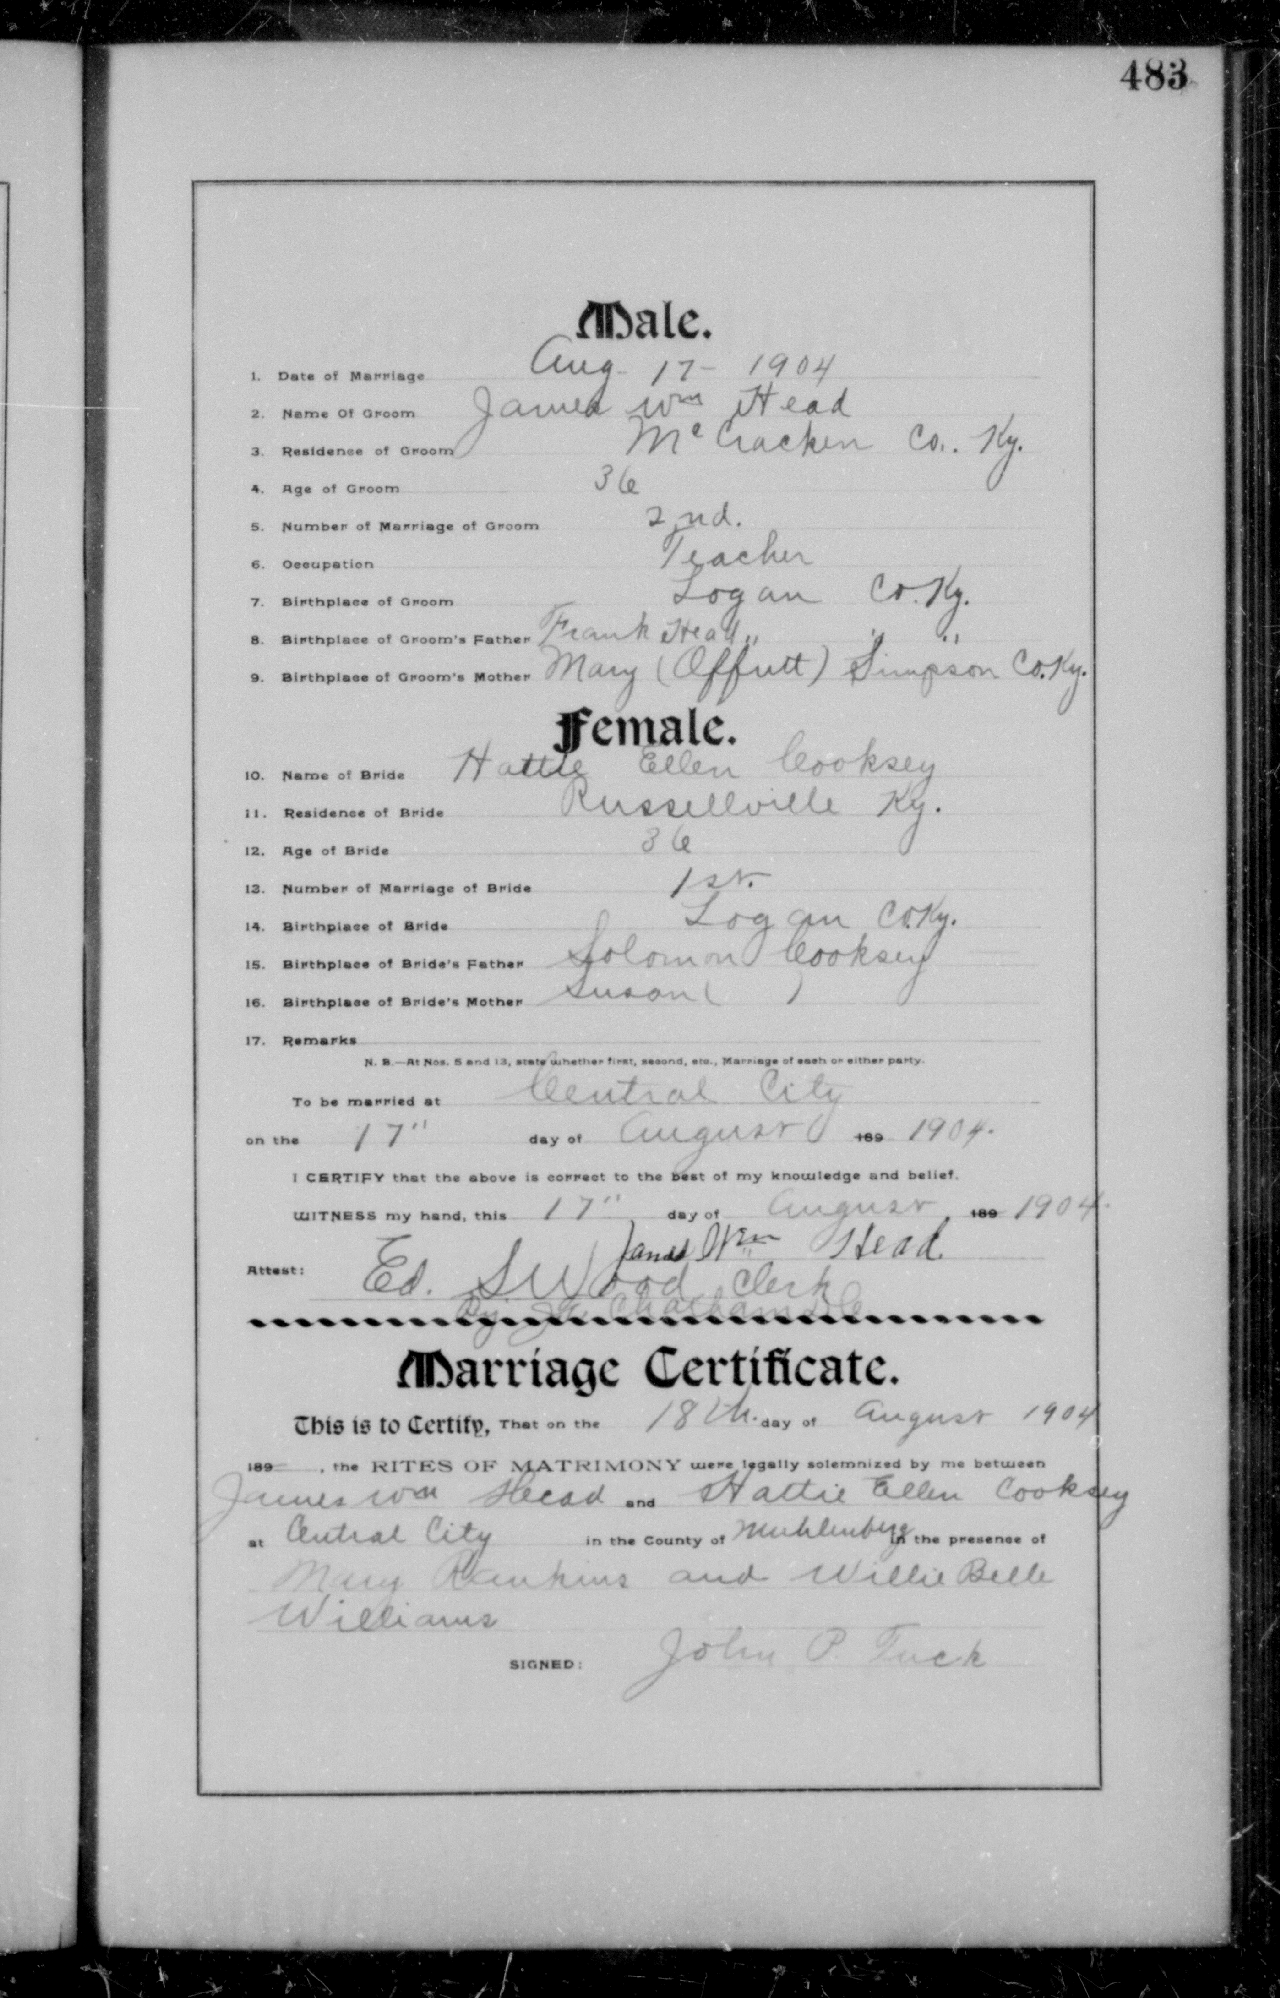 483
Male.
1. Date of Marriage Aug - 17 - 1904
2. Name Of Groom James Wm Head
3. Residence of Groom McCracken Co.. Ky.
4. Age of Groom 36
5. Number of Marriage of Groom 2nd.
6. Occupation Teacher
7. Birthplace of Groom Logan Co. Ky.
8. Birthplace of Groom's Father Frank Head " " "
9. Birthplace of Groom's Mother Mary (Offutt) Simpson Co. Ky.
Female.
10. Name of Bride Hattie Ellen Cooksey
11. Residence of Bride Russellville Ky.
12. Age of Bride 36
13. Number of Marriage of Bride 1st.
14. Birthplace of Bride Logan Co. Ky.
15. Birthplace of Bride's Father Solomon Cooksey
16. Birthplace of Bride's Mother Susan ( )
17. Remarks
N. B.—At Nos. 5 and 13, state whether first, second, etc., Marriage of each or either party.
To be married at Central City
on the 17" day of August 189 1904.
I CERTIFY that the above is correct to the best of my knowledge and belief.
WITNESS my hand, this 17" day of August, 189 1904.
James Wm Head
Attest: Ed. S Wood Clerk
By Chatham DC
Marriage Certificate.
This is to Certify, That on the 18th. day of August 1904
189 , the RITES OF MATRIMONY were legally solemnized by me between
James Wm Head and Hattie Ellen Cooksey
at Central City in the County of Muhlenberg in the presence of
Mary Rankins and Willie Belle
Williams
SIGNED: John P. Tuck